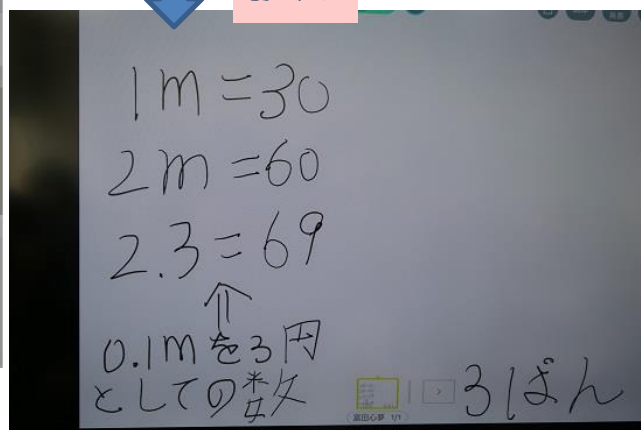 1m=30
2m=60
2.3=69
⇑
0.1mを3円
としての数
3ばん
富田心夢 1/1